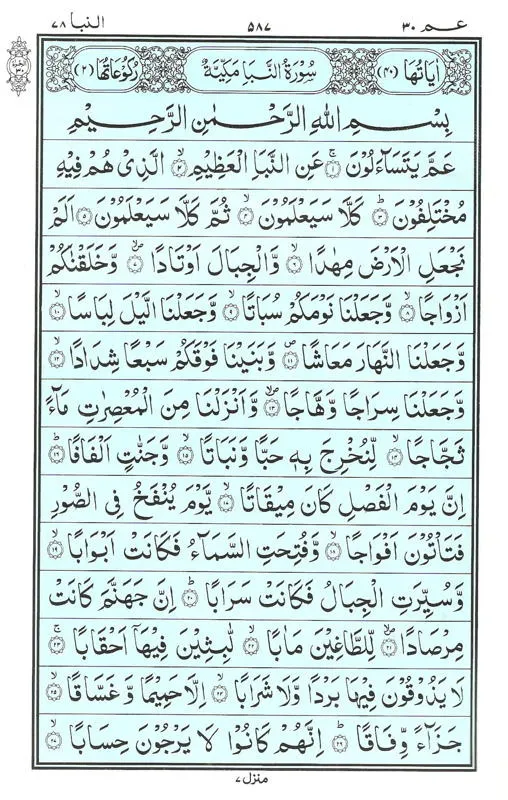 عـم ٣٠ ٥٨٧ النبا ٧٨
الجزء ٣٠
اٰيَاتُهَا (٤٠) سُوْرَةُ النَّبَاِ مَكِّيَّةٌ رُكُوْعَاتُهَا (٢)
بِسْمِ اللّٰهِ الرَّحْمٰنِ الرَّحِيْمِ
عَمَّ يَتَسَآءَلُوْنَ ۚ﴿١﴾ عَنِ النَّبَاِ الْعَظِيْمِ ۙ﴿٢﴾ الَّذِيْ هُمْ فِيْهِ
مُخْتَلِفُوْنَ ؕ﴿٣﴾ كَلَّا سَيَعْلَمُوْنَ ۙ﴿٤﴾ ثُمَّ كَلَّا سَيَعْلَمُوْنَ ﴿٥﴾ اَلَمْ
نَجْعَلِ الْاَرْضَ مِهٰدًا ۙ﴿٦﴾ وَّالْجِبَالَ اَوْتَادًا ۪ۙ﴿٧﴾ وَّخَلَقْنٰكُمْ
اَزْوَاجًا ۙ﴿٨﴾ وَّجَعَلْنَا نَوْمَكُمْ سُبَاتًا ۙ﴿٩﴾ وَّجَعَلْنَا الَّيْلَ لِبَاسًا ۙ﴿١٠﴾
وَّجَعَلْنَا النَّهَارَ مَعَاشًا ۪﴿١١﴾ وَّبَنَيْنَا فَوْقَكُمْ سَبْعًا شِدَادًا ۙ﴿١٢﴾
وَّجَعَلْنَا سِرَاجًا وَّهَّاجًا ۪ۙ﴿١٣﴾ وَّاَنْزَلْنَا مِنَ الْمُعْصِرٰتِ مَآءً
ثَجَّاجًا ۙ﴿١٤﴾ لِّنُخْرِجَ بِهٖ حَبًّا وَّنَبَاتًا ۙ﴿١٥﴾ وَّجَنّٰتٍ اَلْفَافًا ؕ﴿١٦﴾
اِنَّ يَوْمَ الْفَصْلِ كَانَ مِيْقَاتًا ۙ﴿١٧﴾ يَّوْمَ يُنْفَخُ فِى الصُّوْرِ
فَتَاْتُوْنَ اَفْوَاجًا ۙ﴿١٨﴾ وَّفُتِحَتِ السَّمَآءُ فَكَانَتْ اَبْوَابًا ۙ﴿١٩﴾
وَّسُيِّرَتِ الْجِبَالُ فَكَانَتْ سَرَابًا ؕ﴿٢٠﴾ اِنَّ جَهَنَّمَ كَانَتْ
مِرْصَادًا ۙ﴿٢١﴾ لِّلطَّاغِيْنَ مَاٰبًا ۙ﴿٢٢﴾ لّٰبِثِيْنَ فِيْهَآ اَحْقَابًا ۚ﴿٢٣﴾
لَا يَذُوْقُوْنَ فِيْهَا بَرْدًا وَّلَا شَرَابًا ۙ﴿٢٤﴾ اِلَّا حَمِيْمًا وَّغَسَّاقًا ۙ﴿٢٥﴾
جَزَآءً وِّفَاقًا ؕ﴿٢٦﴾ اِنَّهُمْ كَانُوْا لَا يَرْجُوْنَ حِسَابًا ۙ﴿٢٧﴾
منزل ٧